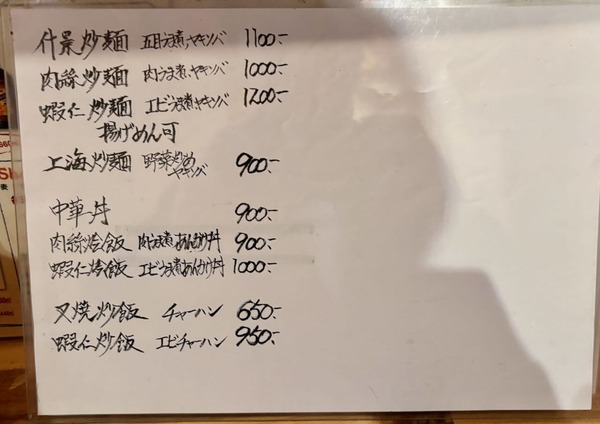 什景炒麺 五目うま煮ヤキソバ 1100.-
肉絲炒麺 肉うま煮ヤキソバ 1000.-
蝦仁炒麺 エビうま煮ヤキソバ 1200.-
揚げめん可
上海炒麺 野菜炒めヤキソバ 900.-
中華丼 900.-
肉絲烩飯 肉うま煮あんかけ丼 900.-
蝦仁烩飯 エビうま煮あんかけ丼 1000.-
叉焼炒飯 チャーハン 650.-
蝦仁炒飯 エビチャーハン 950.-